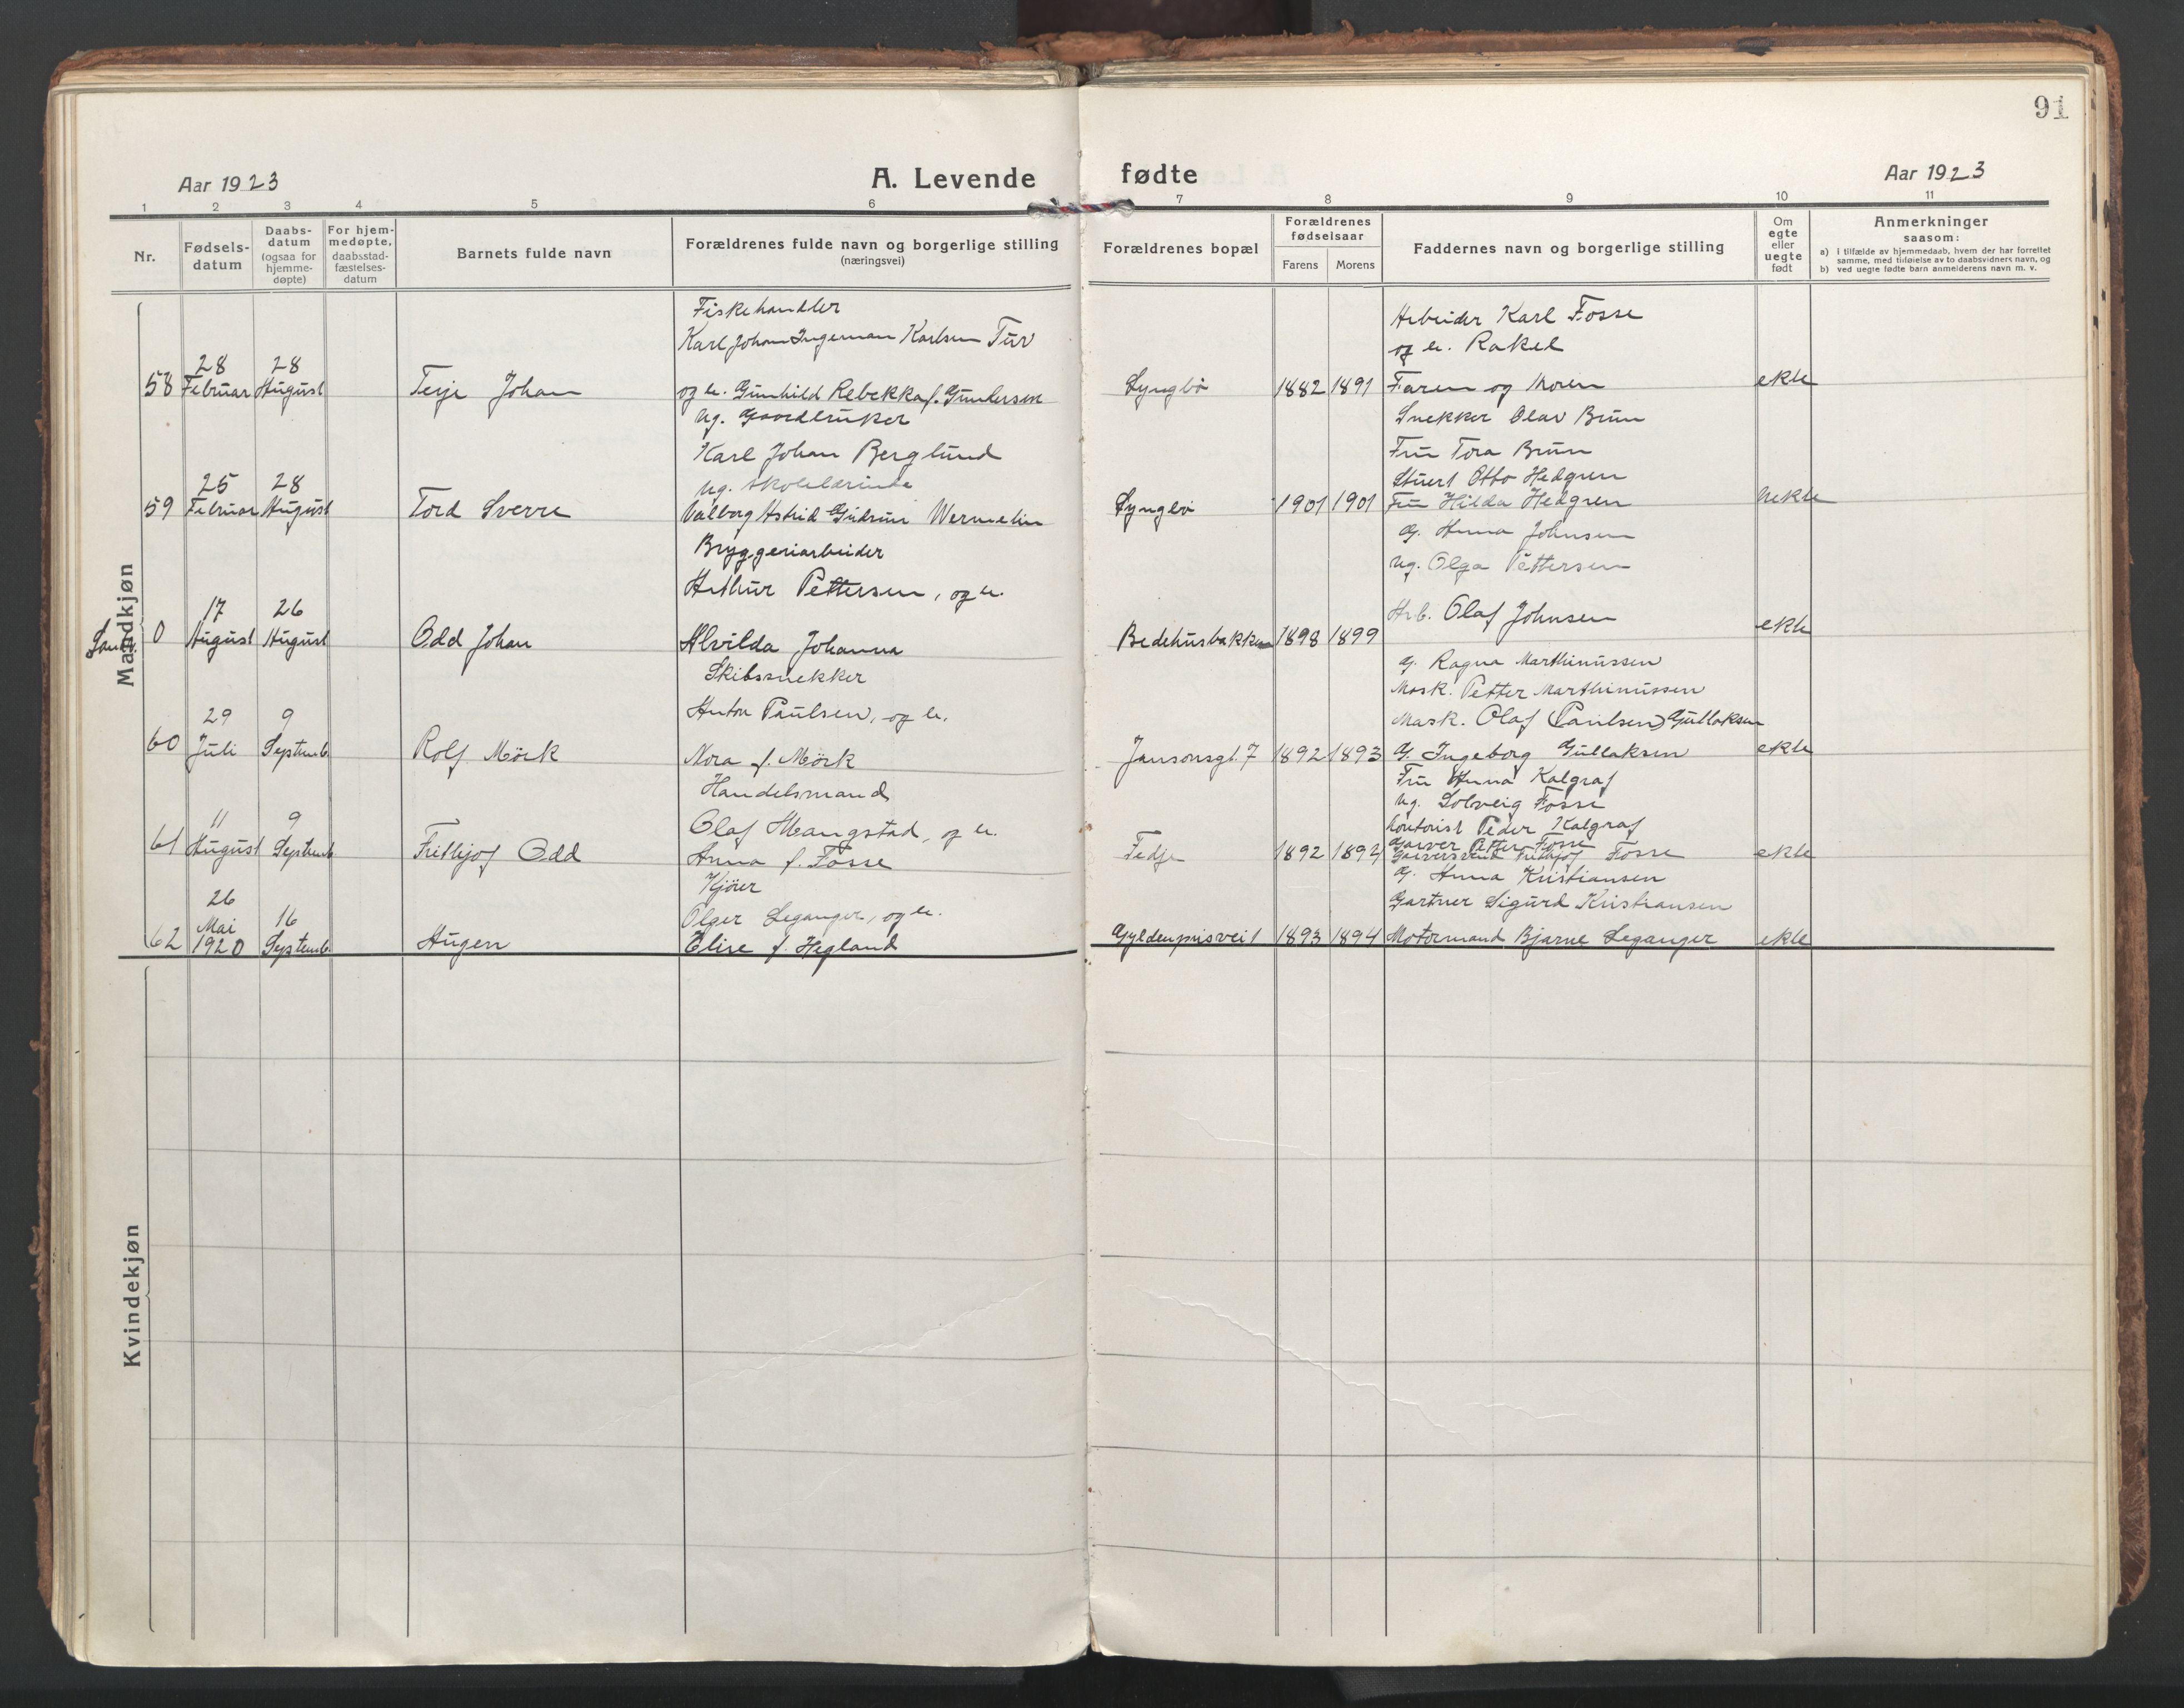 91
Aar 1923
A. Levende fødte
Aar 1923
1 2 3 4 5 6 7 8 9 10 11
Nr.
Fødsels-
datum
Daabs-
datum
(ogsaa for
hjemme-
døpte)
For hjem-
medøpte,
daabsstad-
fæstelses-
datum
Barnets fulde navn
Forældrenes fulde navn og borgerlige stilling
(næringsvei)
Forældrenes bopæl
Forældrenes
fødselsaar
Farens Morens
Faddernes navn og borgerlige stilling
Om
egte
eller
uegte
født
Anmerkninger
saasom:
a) i tilfælde av hjemmedaab, hvem der har forrettet
samme, med tilføielse av to daabsvidners navn, og
b) ved uegte fødte barn anmelderens navn m. v.
Mandkjøn
58
28
Februar
28
August
Terje Johan
Fiskehandler
Karl Johan Ingeman Karlsen Tur
og h. Gunhild Rebekka f. Gundersen
Lyngbø
1882 1891
Arbeider Karl Fosse
og h. Rakel
Faren og Moren
Snekker Olav Brun
ekte
59
25
Februar
28
August
Tord Sverre
ug. Gaardbruker
Karl Johan Berglund
ug. skolelærinde
Valborg Astrid Gudrun Wermelin
Lyngbø
1901 1901
Fru Tora Brun
Stuert Otto Hedgren
Fru Hilda Hedgren
uekte
0
17
August
26
August
Odd Johan
Bryggeriarbeider
Arthur Pettersen, og h.
Alvilda Johanna
Bedehusbakken
1898 1899
G. Anna Johnsen
ug. Olga Pettersen
Arb. Olaf Johnsen
ekte
60
29
Juli
9
Septemb.
Rolf Mörk
Skibssnekker
Anton Paulsen, og h.
Nora f. Mörk
Jansonsgt. 7
1892 1893
G. Ragna Marthinussen
Mask. Petter Marthinussen
Mask. Olaf (Paulsen) Gullaksen
G. Ingeborg Gullaksen
ekte
61
11
August
9
Septemb.
Frithjof Odd
Handelsmand
Olaf Mangstad, og h.
Anna f. Fosse
Fedje
1892 1892
Fru Anna Kalgraf
ug. Solveig Fosse
Kontorist Peder Kalgraf
Garver Petter Fosse
Garversvend Frithjof Fosse
ekte
62
26
Mai
1920
16
Septemb.
Haagen
Kjörer
Olger Leganger, og h.
Elise f. Hegland
Gyldenprisvei 1
1893 1894
G. Anna Kristiansen
Gartner Sigurd Kristiansen
Motormand Bjarne Leganger
ekte
Kvindekjøn